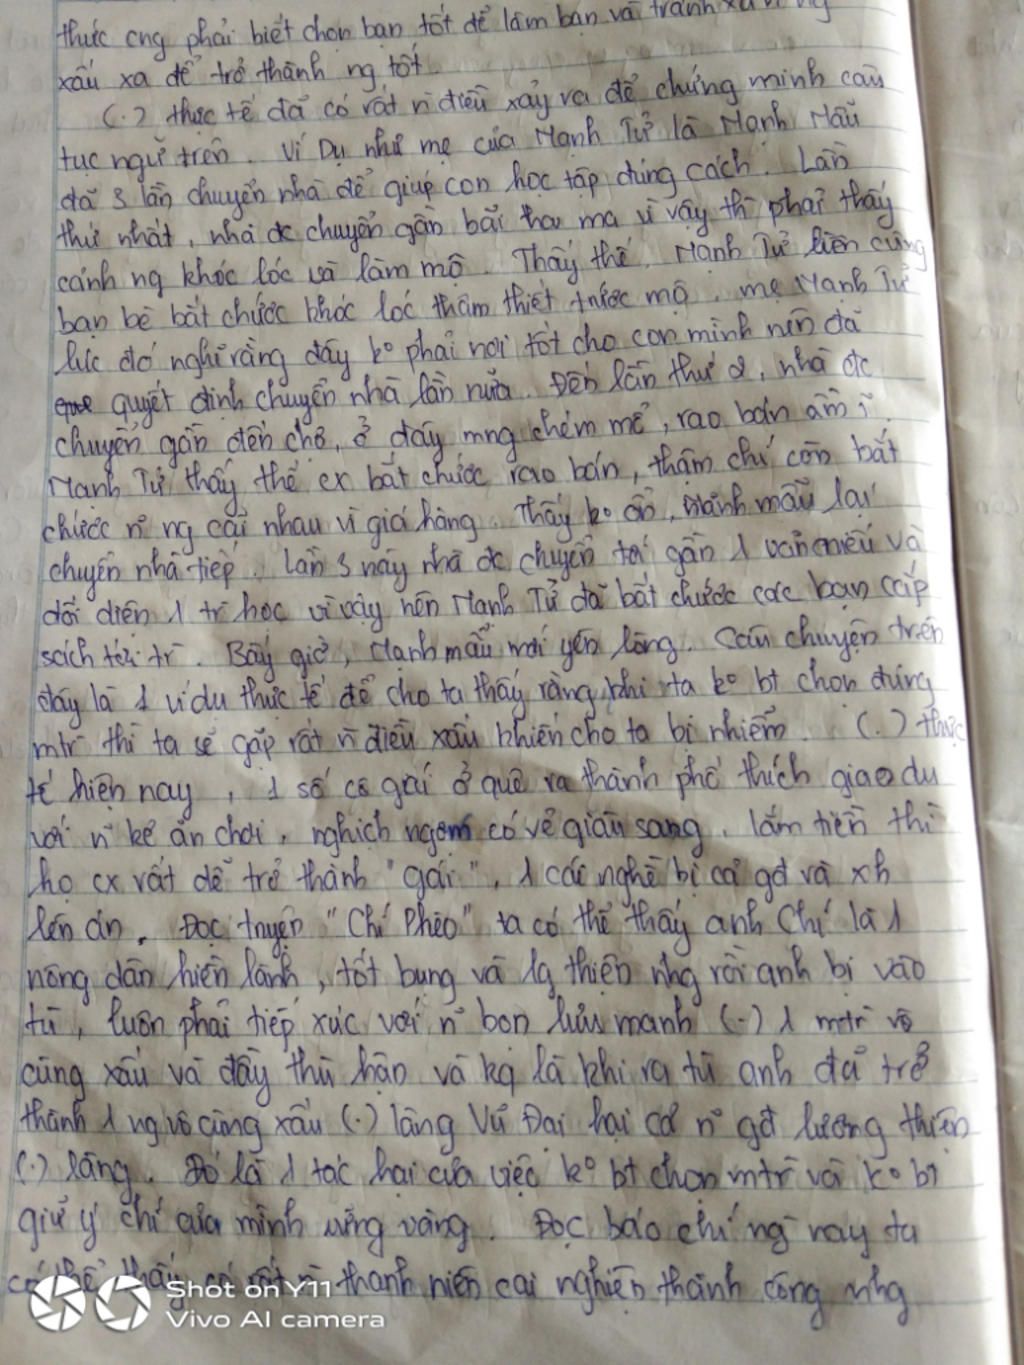 thức cng phải biết chọn bạn tốt để làm bạn và tránh xa
xấu xa để trở thành ng tốt.
(.) thực tế đã có rất n` điều xảy ra để chứng minh câu
tục ngữ trên. Ví Dụ như mẹ của Mạnh Tử là Mạnh Mẫu
đã 3 lần chuyển nhà để giúp con học tập đúng cách. Lần
thứ nhất, nhà đc chuyển gần bãi tha ma vì vậy thì phải thấy
cảnh ng khóc lóc và làm mộ. Thấy thế, Mạnh Tử liền cùng
bạn bè bắt chước khóc lóc thảm thiết trước mộ. mẹ Mạnh Tử
lúc đó nghĩ rằng đây ko phải nơi tốt cho con mình nên đã
quyết định chuyển nhà lần nữa. Đến lần thứ 2, nhà đc
chuyển gần đến chợ, ở đây mng chém mẻ, rao bán ầm ĩ.
Mạnh Tử thấy thế cx bắt chước rao bán, thậm chí còn bắt
chước n~ ng cãi nhau vì giá hàng. Thấy ko ổn, Mạnh mẫu lại
chuyển nhà tiếp. Lần 3 này nhà đc chuyển tới gần 1 văn miếu và
đối diện 1 tr` học vì vậy nên Mạnh Tử đã bắt chước các bạn cắp
sách tới tr`. Bấy giờ, Mạnh mẫu mới yên lòng. Câu chuyện trên
đây là 1 ví dụ thực tế để cho ta thấy rằng khi ta ko bt chọn đúng
mtr` thì ta sẽ gặp rất n` điều xấu khiến cho ta bị nhiễm. (.) thực
tế hiện nay, 1 số cô gái ở quê ra thành phố thích giao du
với n~ kẻ ăn chơi, nghịch ngợm có vẻ giàu sang, lắm tiền thì
họ cx rất dễ trở thành "gái", 1 cái nghề bị cả gđ và xh
lên án. Đọc truyện "Chí Phèo" ta có thể thấy anh Chí là 1
nông dân hiền lành, tốt bụng và lg thiện nhg rồi anh bị vào
tù, luôn phải tiếp xúc với n~ bọn lưu manh (.) 1 mtr` vô
cùng xấu và đầy thù hận và kq là khi ra tù anh đã trở
thành 1 ng vô cùng xấu (.) làng Vũ Đại hại cả n~ gđ lương thiện
(.) làng. Đó là 1 tác hại của việc ko bt chọn mtr` và ko bt
giữ ý chí của mình vững vàng. Đọc báo chí ng` nay ta
có thể thấy có rất n` thanh niên cai nghiện thành công nhg
Shot on Y11
Vivo AI camera